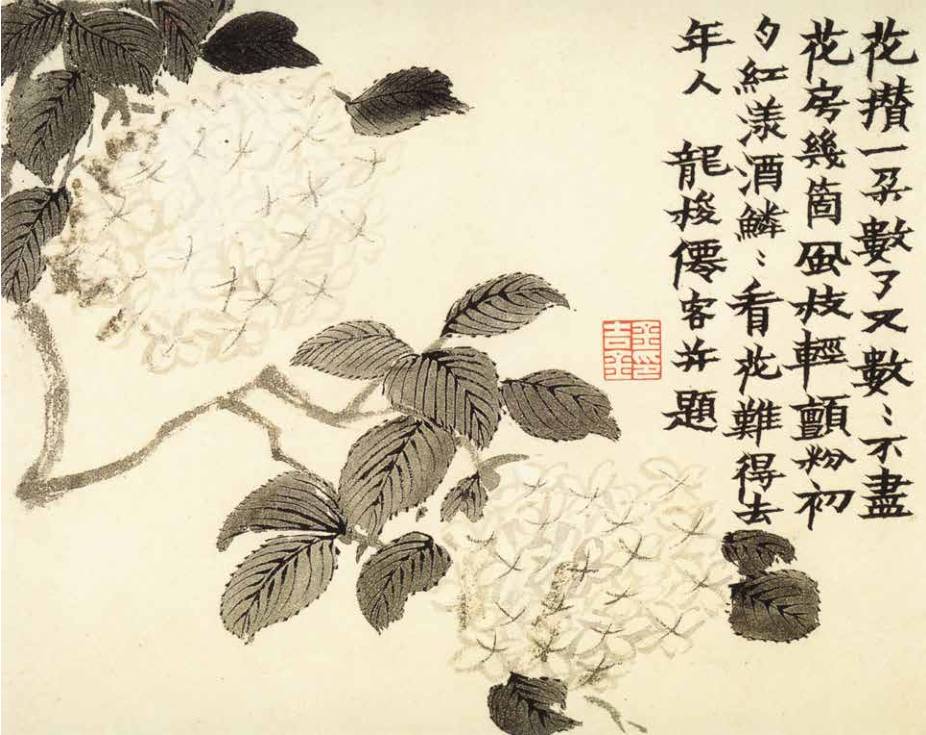 花攢一朶數了又數〻不盡
花房幾箇風枝輕顫粉初
勻紅漾酒鱗〻看花難得去
年人 龍梭僊客并題
金吉金印